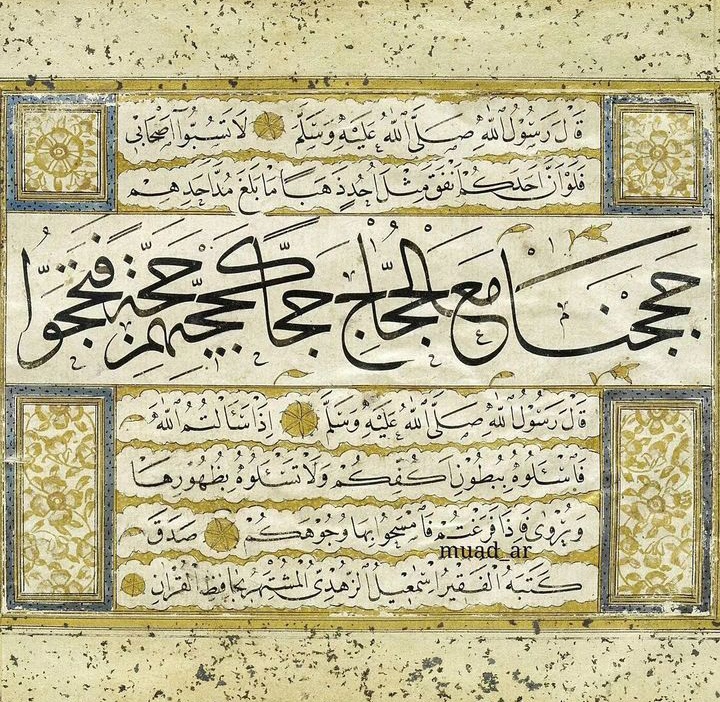 قَالَ رَسُولُ اللهِ صَلَّى اللهُ عَلَيْهِ وَسَلَّمَ لَا تَسُبُّوا اَصْحَابِي
فَلَوْ اَنَّ اَحَدَكُمْ اَنْفَقَ مِثْلَ اُحُدٍ ذَهَبًا مَا بَلَغَ مُدَّ اَحَدِهِمْ
حججنا مع الحجّاج حجّا كحجّهم
قَالَ رَسُولُ اللهِ صَلَّى اللهُ عَلَيْهِ وَسَلَّمَ اِذَا سَاَلْتُمُ اللهَ
فَاسْئَلُوهُ بِبُطُونِ اَكُفِّكُمْ وَلَا تَسْئَلُوهُ بِظُهُورِهَا
وَيُرْوٰى فَاِذَا فَرَغْتُمْ فَامْسَحُوا بِهَا وُجُوهَكُمْ صَدَقَ
muad_ar
كَتَبَهُ الْفَقِيرُ اِسْمٰعِيلُ الزُّهْدِيُّ الْمُشْتَهِرُ بِحَافِظِ الْقُرْاٰنِ